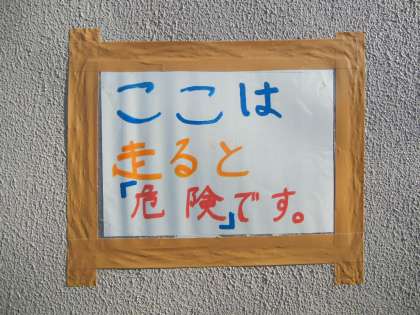 ここは
走ると
「危険」です。